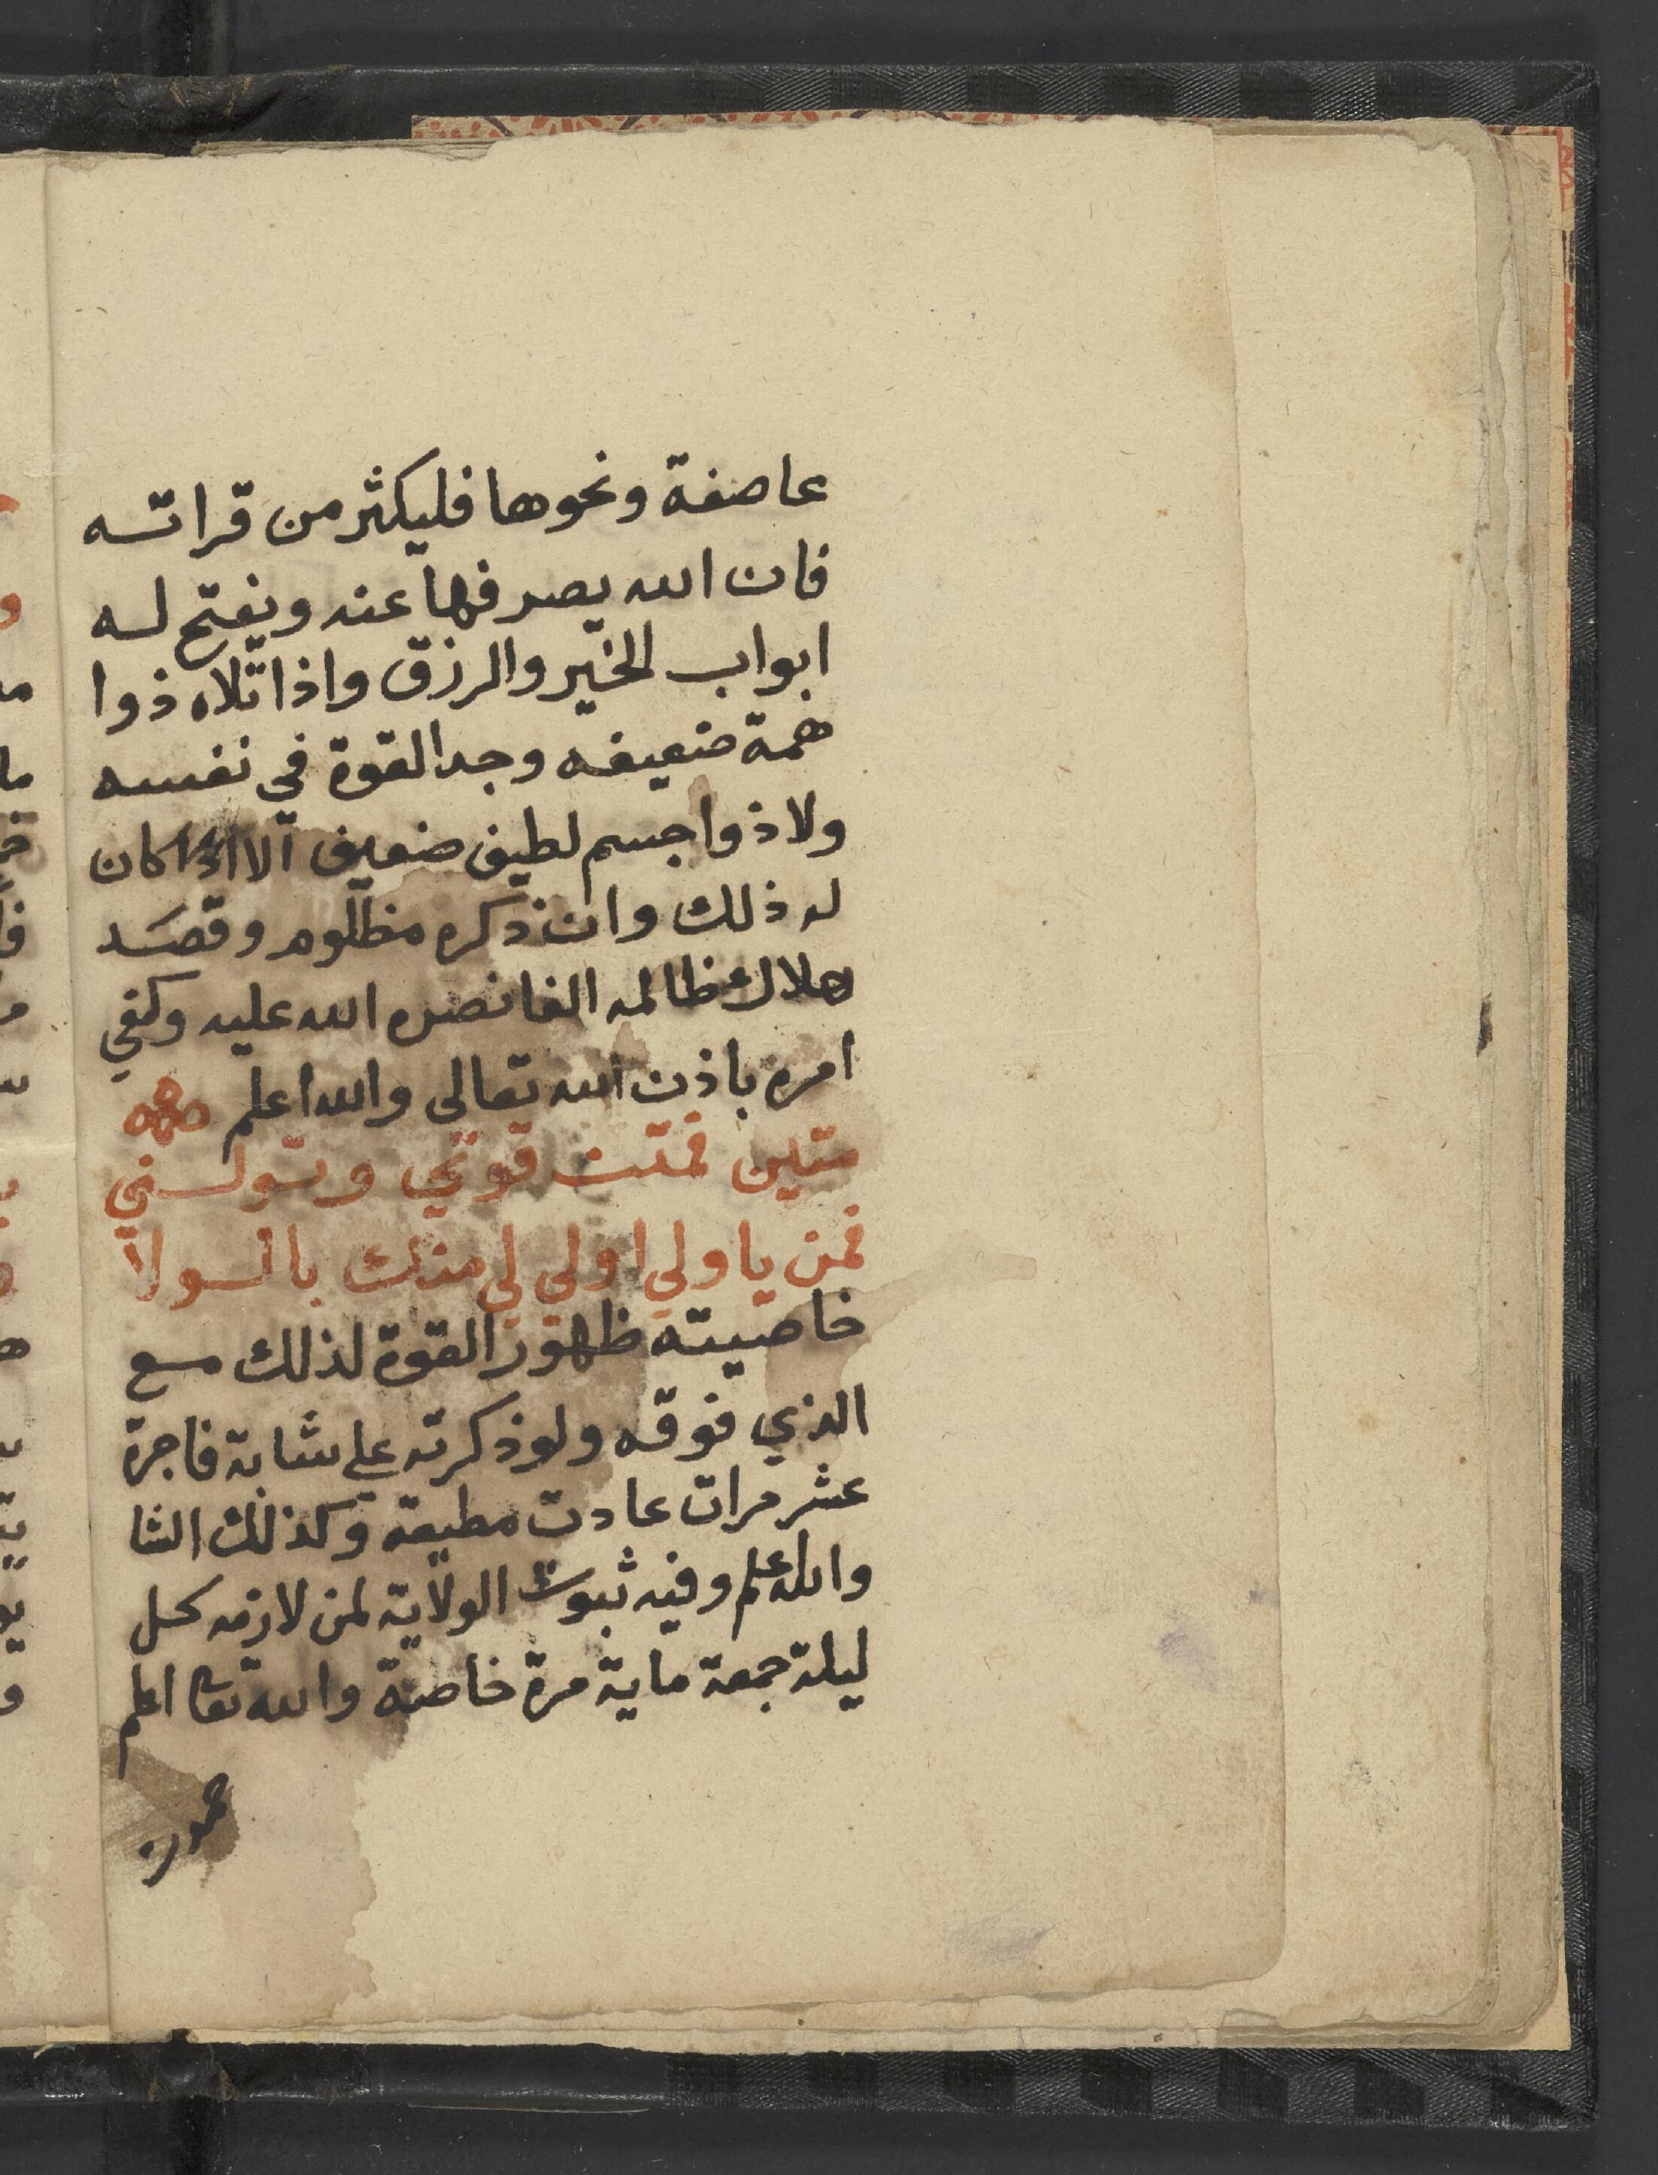 عاصفة ونحوها فليكثر من قراته
فان الله يصرفها عنه ويفتح له
ابواب الخير والرزق واذا تلاه ذوا
همة ضعيفه وجد القوة في نفسه
ولا ذوا جسم لطيف ضعيف الا كان
له ذلك وان ذكره مظلوم وقصد
هلاك ظالمه الفا نصره الله عليه وكفي
امره باذن الله تعالى والله اعلم
متين فمتت قوتي وتولني
فمن يا ولي اولي لي منك بالولا
خاصيته ظهور القوة لذلك مع
الذي فوقه ولو ذكرته علي شابة فاجرة
عشر مرات عادت مطيعة وكذلك الشا
والله اعلم وفيه ثبوت الولاية لمن لازمه كل
ليلة جمعة ماية مرة خاصة والله تعا اعلم